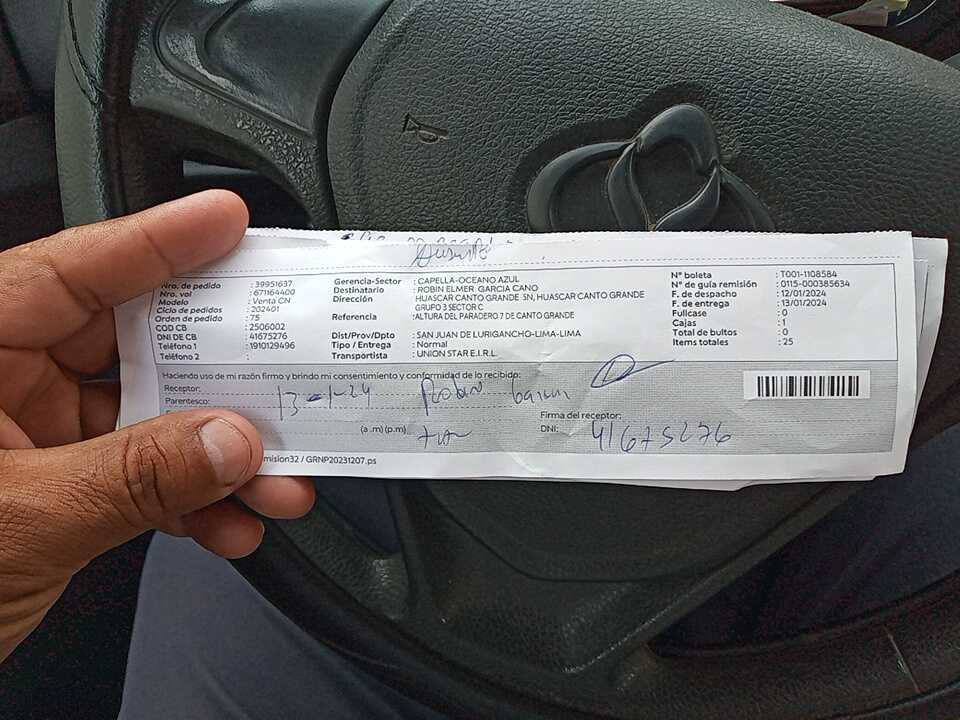 Nro. de pedido : 39951637
Nro. val : 671164400
Modelo : Venta CN
Ciclo de pedidos : 202401
Orden de pedido : 75
COD CB : 2506002
DNI DE CB : 41675276
Teléfono 1 : 1910129496
Teléfono 2 :
Gerencia-Sector : CAPELLA-OCEANO AZUL
Destinatario : ROBIN ELMER GARCIA CANO
Dirección HUASCAR CANTO GRANDE SN, HUASCAR CANTO GRANDE
GRUPO 3 SECTOR C
Referencia :ALTURA DEL PARADERO 7 DE CANTO GRANDE
Dist/Prov/Dpto : SAN JUAN DE LURIGANCHO-LIMA-LIMA
Tipo / Entrega : Normal
Transportista : UNION STAR E.I.R.L.
N° boleta : T001-1108584
N° de guía remisión : 0115-000385634
F. de despacho : 12/01/2024
F. de entrega : 13/01/2024
Fullcase : 0
Cajas : 1
Total de bultos : 0
Items totales : 25
Haciendo uso de mi razón firmo y brindo mi consentimiento y conformidad de lo recibido:
Receptor:
13-1-24
Parentesco:
(a .m) (p.m)
Firma del receptor:
DNI: 41675276
emision32 / GRNP20231207.ps